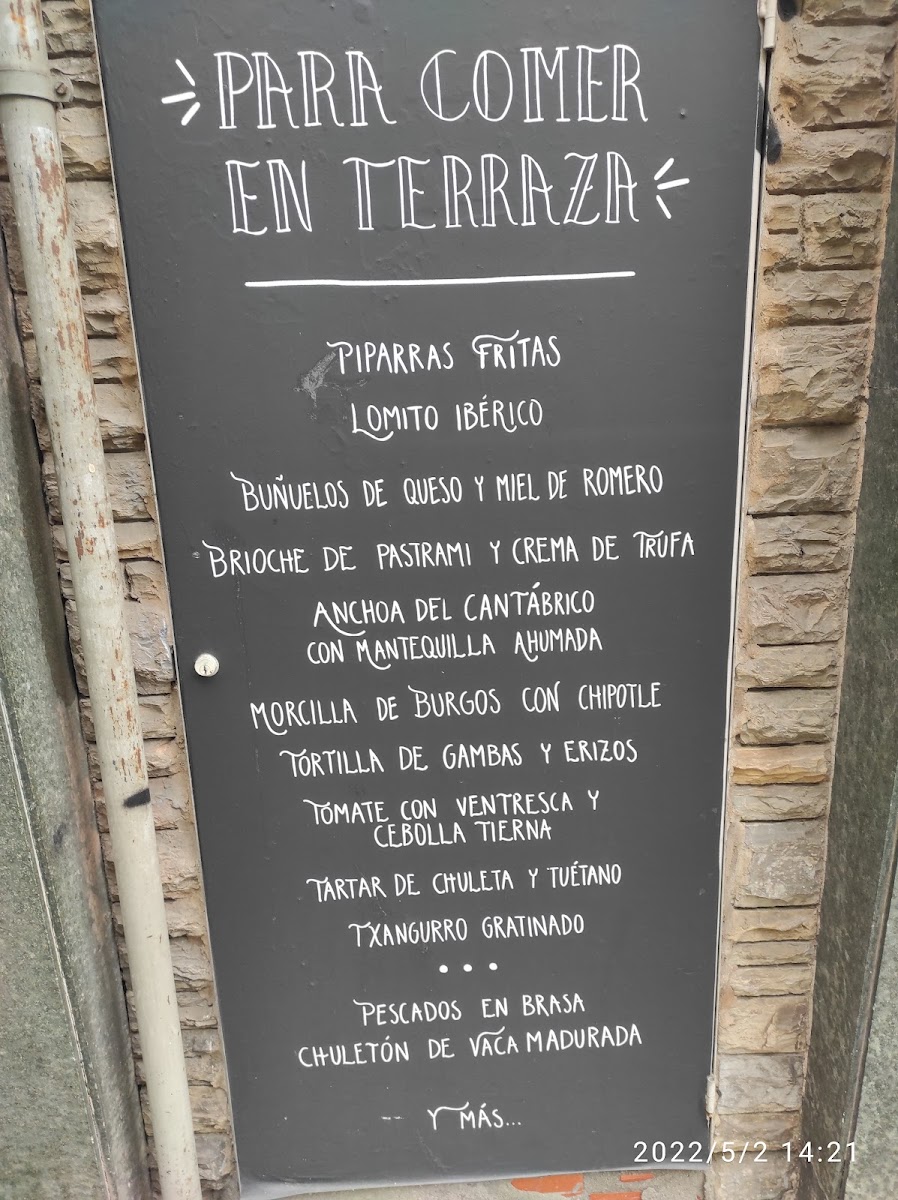 PARA COMER
EN TERRAZA
PIPARRAS FRITAS
LOMITO IBÉRICO
BUÑUELOS DE QUESO Y MIEL DE ROMERO
BRIOCHE DE PASTRAMI Y CREMA DE TRUFA
ANCHOA DEL CANTÁBRICO
CON MANTEQUILLA AHUMADA
MORCILLA DE BURGOS CON CHIPOTLE
TORTILLA DE GAMBAS Y ERIZOS
TOMATE CON VENTRESCA Y
CEBOLLA TIERNA
TARTAR DE CHULETA Y TUÉTANO
TXANGURRO GRATINADO
...
PESCADOS EN BRASA
CHULETÓN DE VACA MADURADA
Y MÁS...
2022/5/2 14:21